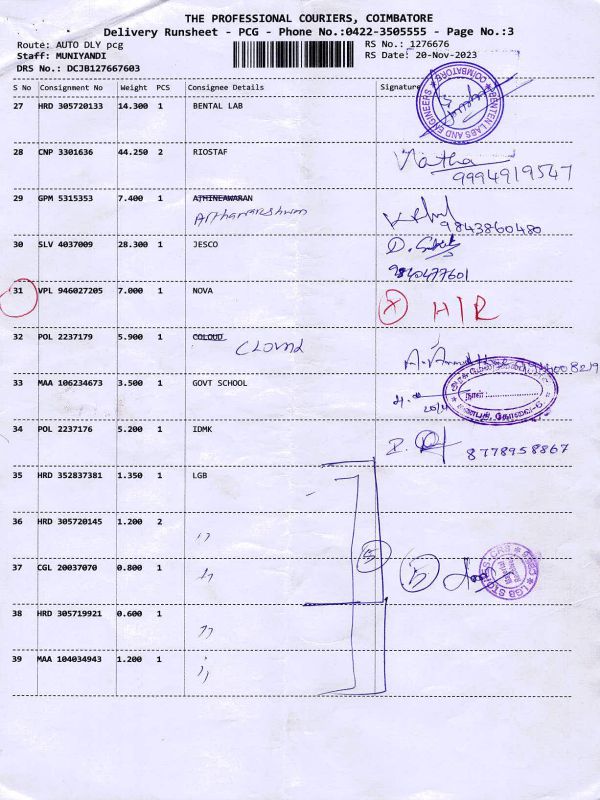 THE PROFESSIONAL COURIERS, COIMBATORE
Delivery Runsheet - PCG - Phone No.:0422-3505555 - Page No.:3
Route: AUTO DLY pcg RS No.: 1276676
Staff: MUNIYANDI RS Date: 20-Nov-2023
DRS No.: DCJB127667603
S No Consignment No Weight PCS Consignee Details Signature
27 HRD 305720133 14.300 1 BENTAL LAB
BENTEN LABS AND ENGINEERS * COIMBATORE *
28 CNP 3301636 44.250 2 RIOSTAF Natha
9994919547
29 GPM 5315353 7.400 1 ATHINEAWARAN
9843860480
30 SLV 4037009 28.300 1 JESCO
9840477601
31 VPL 946027205 7.000 1 NOVA X H/R
32 POL 2237179 5.900 1 COLOUD
CLOUND
33 MAA 106234673 3.500 1 GOVT SCHOOL
நாள் :
கணபதி, கோவை-6
34 POL 2237176 5.200 1 IDMK
8778958867
35 HRD 352837381 1.350 1 LGB
36 HRD 305720145 1.200 2 ,,
37 CGL 20037070 0.800 1 ,, 5 5
LGB STORES-CRS
38 HRD 305719921 0.600 1 ,,
39 MAA 104034943 1.200 1 ,,